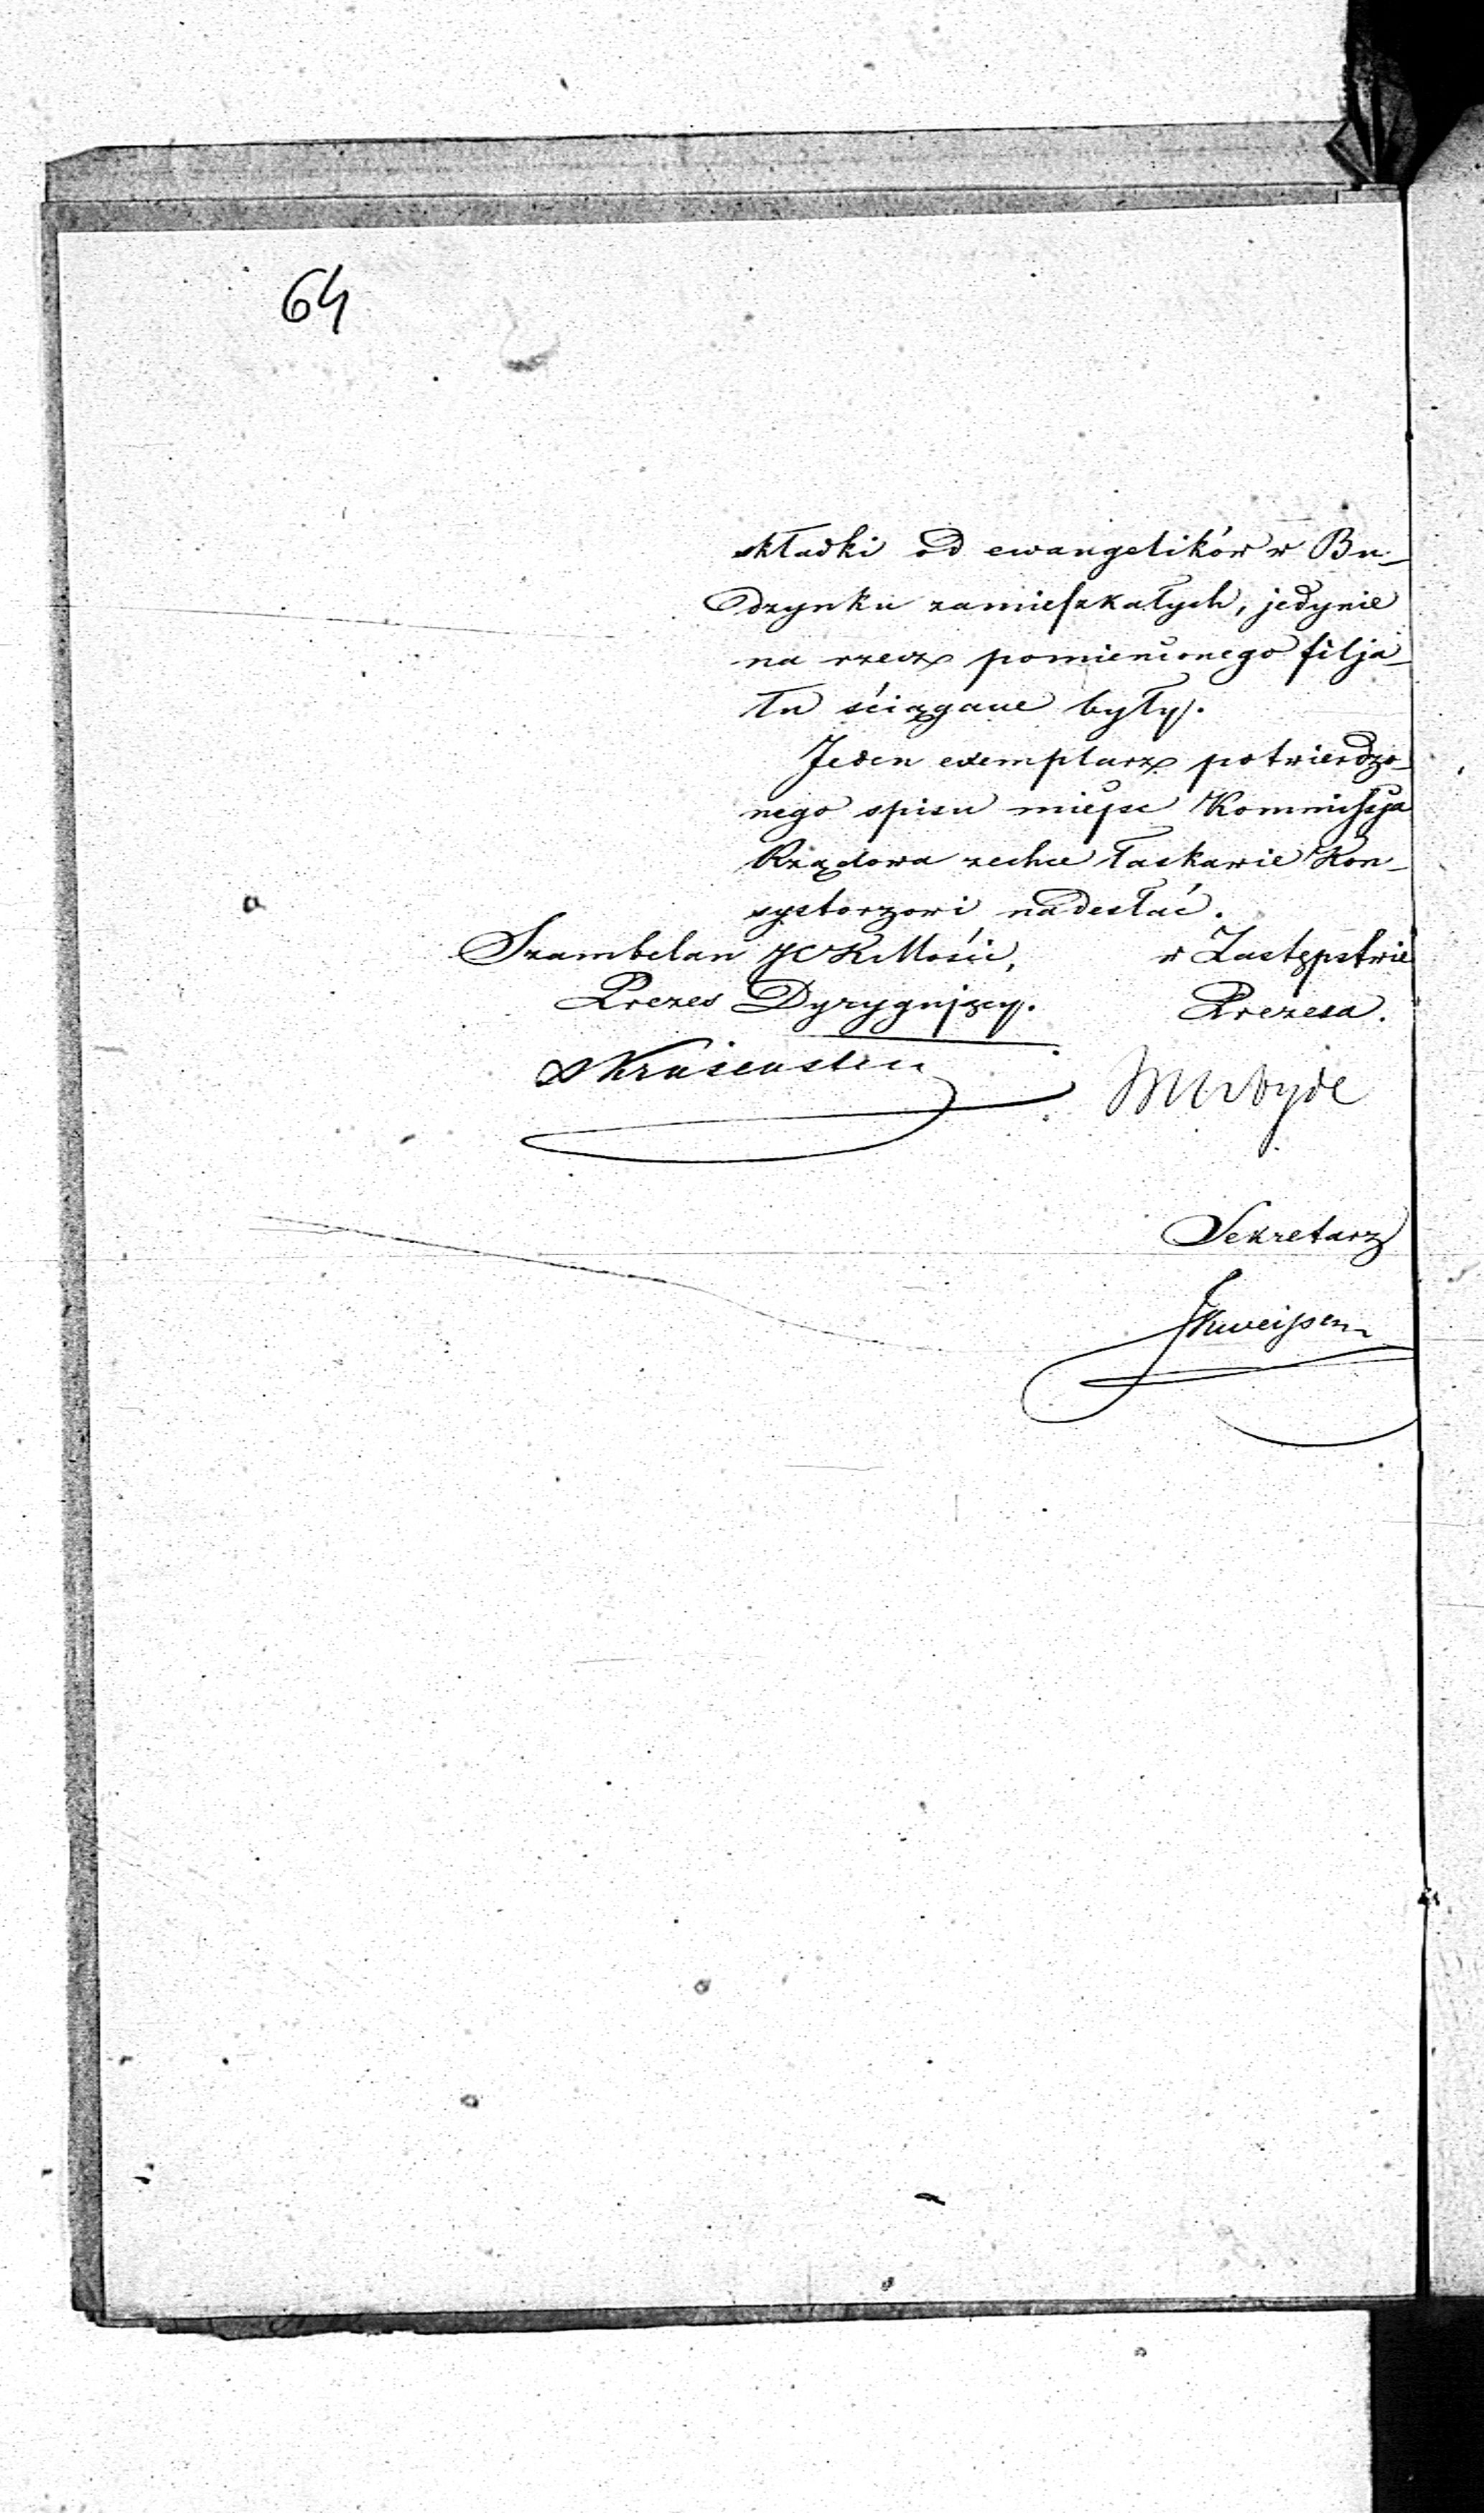 64
składki od ewangelików w Bu-
dzynku zamieszkałych, jedynie
na rzecz pomienionego filja-
łu ściągane były.
Jeden exemplarz potwierdzo-
nego spisu miejsc Kommissja
Rządowa zechce łaskawie Kon-
systorzowi nadesłać.
Szambelan JCKMości, w Zastępstwie
Prezes Dyrygujący. Prezesa.
Krusenstern
Sekretarz